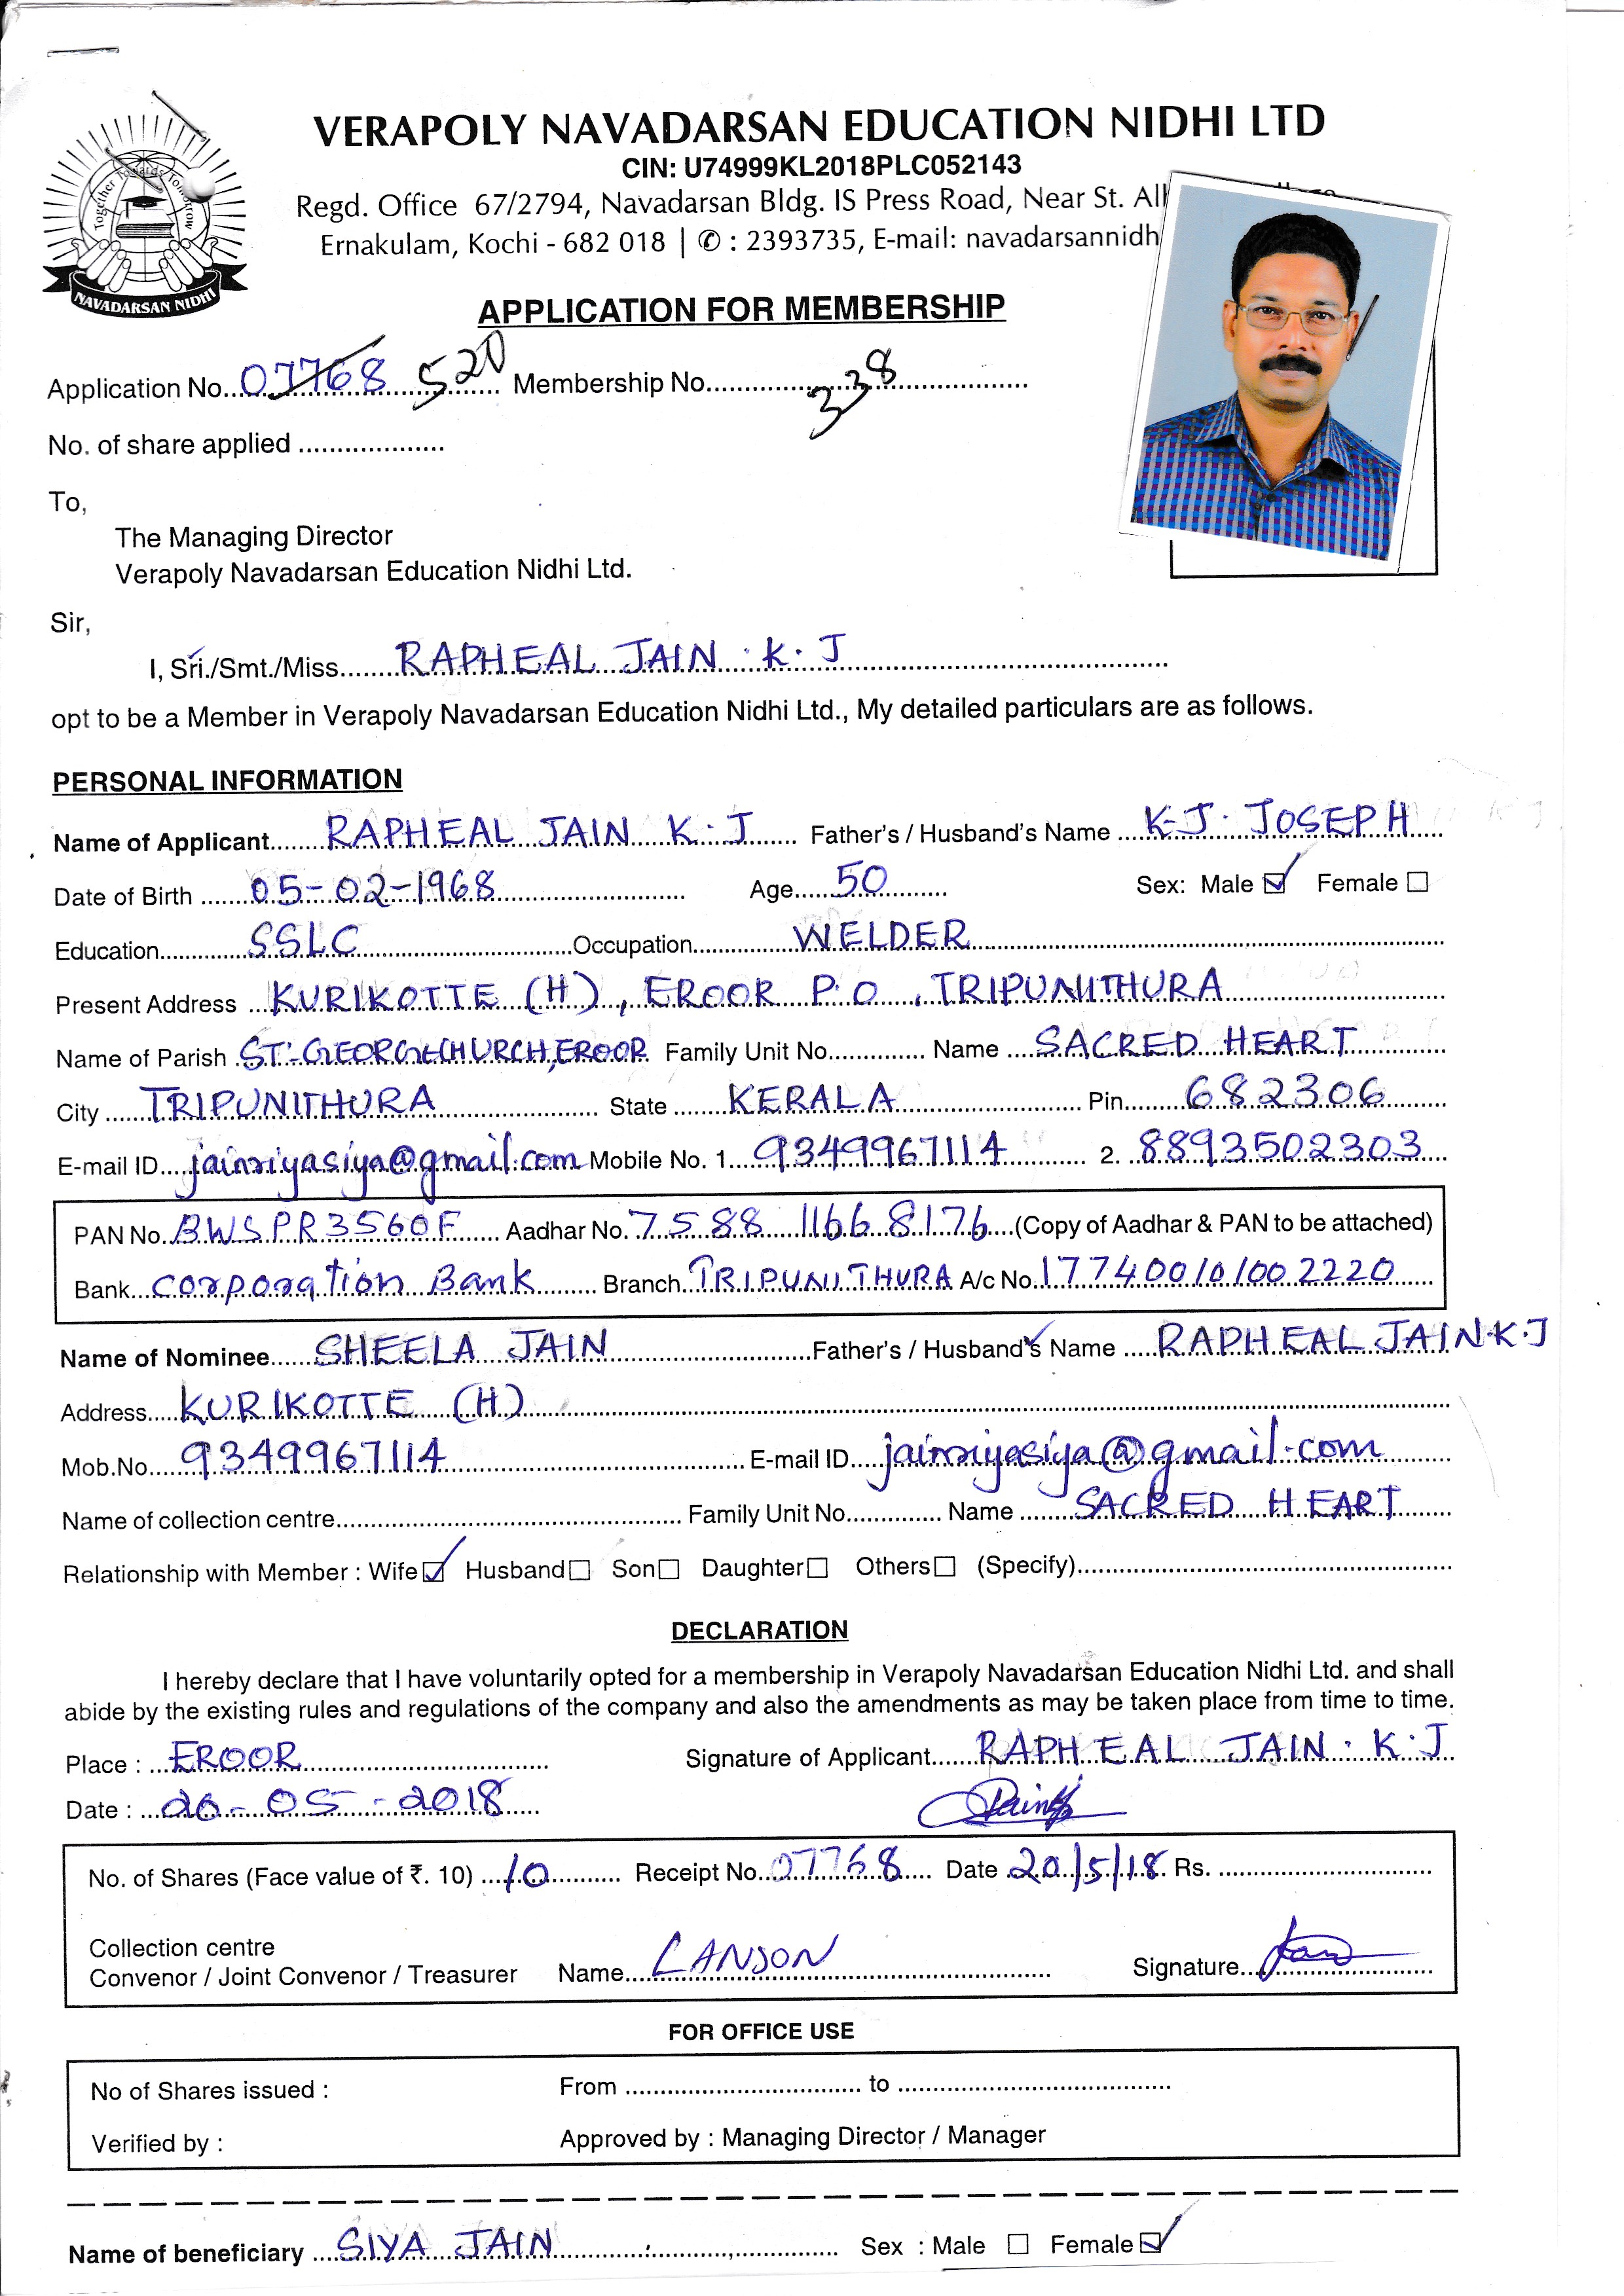 VERAPOLY NAVADARSAN EDUCATION NIDHI LTD
CIN: U74999KL2018PLC052143
Regd. Office 67/2794, Navadarsan Bldg. IS Press Road, Near St.
Ernakulam, Kochi - 682 018 | ✆ : 2393735, E-mail: navadarsannidh
Together Towards Tomorrow
NAVADARSAN NIDHI
APPLICATION FOR MEMBERSHIP
Application No. 07768 520 Membership No. 338
No. of share applied
To,
The Managing Director
Verapoly Navadarsan Education Nidhi Ltd.
Sir,
I, Sri./Smt./Miss RAPHEAL JAIN . K . J
opt to be a Member in Verapoly Navadarsan Education Nidhi Ltd., My detailed particulars are as follows.
PERSONAL INFORMATION
Name of Applicant RAPHEAL JAIN K . J Father's / Husband's Name K.J. JOSEPH
Date of Birth 05-02-1968 Age 50 Sex: Male ☑ Female ☐
Education SSLC Occupation WELDER
Present Address KURIKOTTE (H), EROOR P.O , TRIPUNITHURA
Name of Parish ST. GEORGE CHURCH, EROOR Family Unit No. Name SACRED HEART
City TRIPUNITHURA State KERALA Pin 682306
E-mail ID jainriyasiya@gmail.com Mobile No. 1. 9349967114 2. 8893502303
PAN No. BWSPR3560F Aadhar No. 7588 1166 8176 (Copy of Aadhar & PAN to be attached)
Bank Corporation Bank Branch TRIPUNITHURA A/c No. 177400101002220
Name of Nominee SHEELA JAIN Father's / Husband's Name RAPHEAL JAIN.K.J
Address KURIKOTTE (H)
Mob.No. 9349967114 E-mail ID jainriyasiya@gmail.com
Name of collection centre Family Unit No. Name SACRED HEART
Relationship with Member : Wife ☑ Husband ☐ Son ☐ Daughter ☐ Others ☐ (Specify)
DECLARATION
I hereby declare that I have voluntarily opted for a membership in Verapoly Navadarsan Education Nidhi Ltd. and shall
abide by the existing rules and regulations of the company and also the amendments as may be taken place from time to time.
Place : EROOR Signature of Applicant RAPHEAL JAIN . K . J
Date : 20 - 05 - 2018
No. of Shares (Face value of ₹. 10) 10 Receipt No. 07768 Date 20/5/18 Rs.
Collection centre
Convenor / Joint Convenor / Treasurer Name LANSON Signature
FOR OFFICE USE
No of Shares issued : From to
Verified by : Approved by : Managing Director / Manager
Name of beneficiary SIYA JAIN Sex : Male ☐ Female ☑